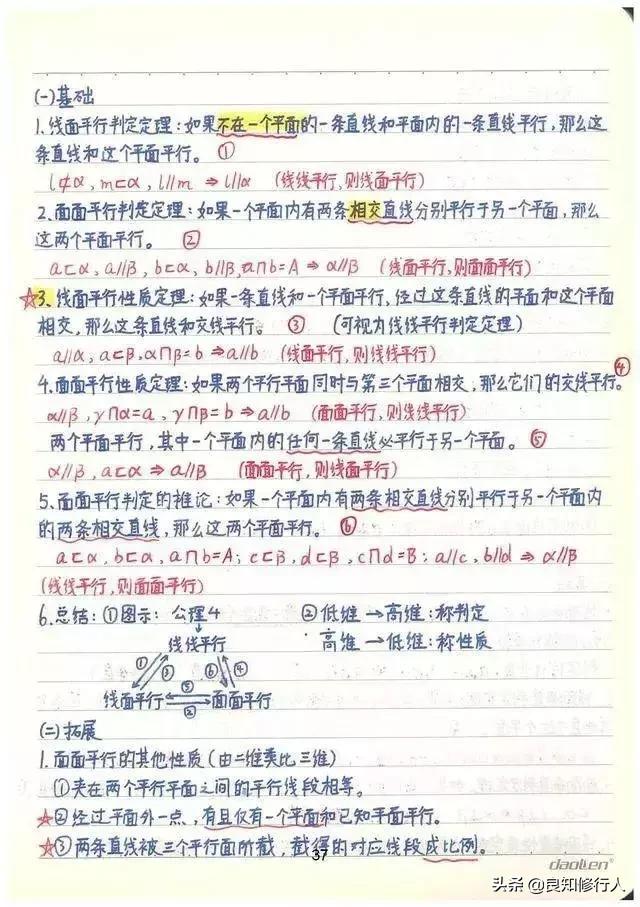 (一)基础
1.线面平行判定定理:如果不在一个平面的一条直线和平面内的一条直线平行,那么这
条直线和这个平面平行。 ①
l⊄α, m⊂α, l∥m ⇒ l∥α (线线平行,则线面平行)
2.面面平行判定定理:如果一个平面内有两条相交直线分别平行于另一个平面,那么
这两个平面平行。 ②
a⊂α, a∥β, b⊂α, b∥β, a∩b=A ⇒ α∥β (线面平行,则面面平行)
☆3.线面平行性质定理:如果一条直线和一个平面平行,经过这条直线的平面和这个平面
相交,那么这条直线和交线平行。 ③ (可视为线线平行判定定理)
a∥α, a⊂β, α∩β=b ⇒ a∥b (线面平行,则线线平行)
4.面面平行性质定理:如果两个平行平面同时与第三个平面相交,那么它们的交线平行。④
α∥β, γ∩α=a, γ∩β=b ⇒ a∥b (面面平行,则线线平行)
两个平面平行,其中一个平面内的任何一条直线必平行于另一个平面。 ⑤
α∥β, a⊂α ⇒ a∥β (面面平行,则线面平行)
5.面面平行判定的推论:如果一个平面内有两条相交直线分别平行于另一个平面内
的两条相交直线,那么这两个平面平行。 ⑥
a⊂α, b⊂α, a∩b=A; c⊂β, d⊂β, c∩d=B; a∥c, b∥d ⇒ α∥β
(线线平行,则面面平行)
6.总结:①图示: 公理4 ②低维→高维:称判定
线线平行 高维→低维:称性质
① ③ ⑥ ④
线面平行 ⑤ ② 面面平行
(二)拓展
1.面面平行的其他性质(由二维类比三维)
①夹在两个平行平面之间的平行线段相等。
★②经过平面外一点,有且仅有一个平面和已知平面平行。
★③两条直线被三个平行面所截,截得的对应线段成比例。
37
daoLen
头条 @良知修行人